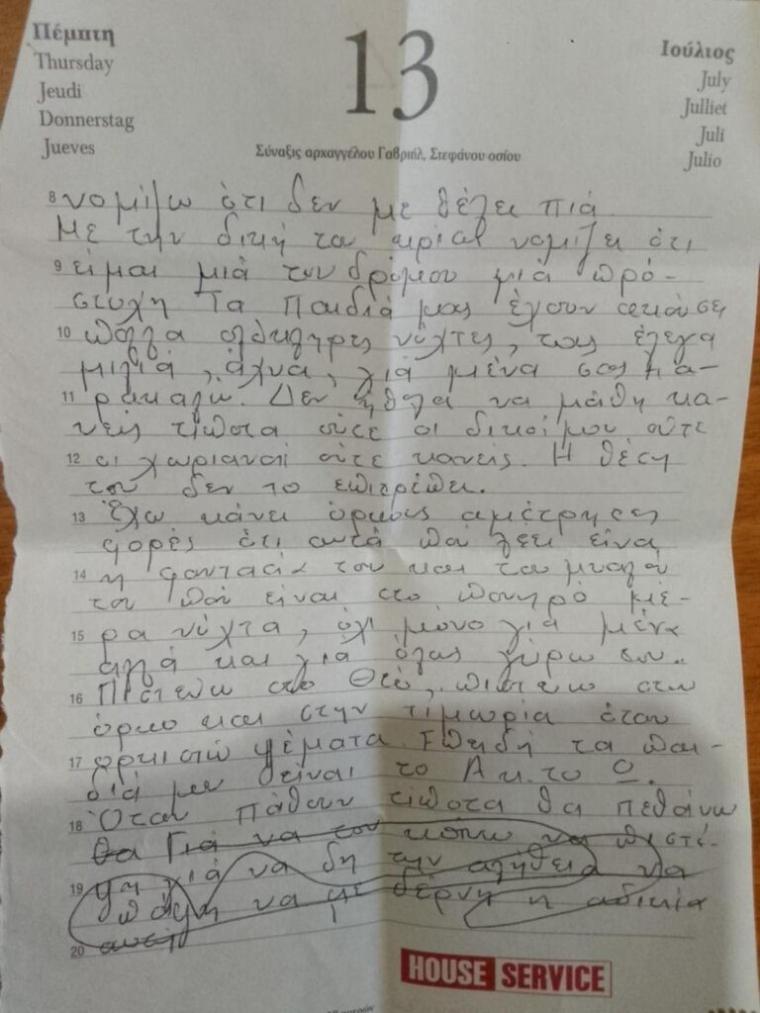 Πέμπτη
Thursday
Jeudi
Donnerstag
Jueves
13
Ιούλιος
July
Julliet
Juli
Julio
Σύναξις αρχαγγέλου Γαβριήλ, Στεφάνου οσίου
8 νομίζω ότι δεν με θέλει πιά
Με την δική του νομίζει ότι
9 είμαι μιά του δρόμου μιά πρό-
στυχη Τα Παιδιά μας έχουν
10 ολόκληρες νύχτες, τους έλεγα
μιλιά, άχνα, γιά μένα σας πα-
11 ρακαλώ. Δεν ήθελα να μάθη κα-
νείς τίποτα ούτε οι δικοί μου ούτε
12 οι χωριανοί ούτε κανείς. Η θέση
του δεν το επιτρέπει.
13 Έχω κάνει όρκους αμέτρητες
φορές ότι αυτά που λέει είναι
14 η φαντασία του και του μυαλού
του που είναι στο πονηρό μέ-
15 ρα νύχτα, όχι μόνο γιά μένα
αλλά και γιά όλους γύρω του..
16 Πιστεύω στο Θεό, πιστεύω στον
όρκο και στην τιμωρία όταν
17 ορκιστώ ψέματα. Επειδή τα παι-
διά μου είναι το Α κ. το Ω.
18 Όταν πάθουν τίποτα θα πεθάνω
θα Γιά να τον κάνω να πιστέ-
19 ψη γιά να δη την αλήθεια να
πάψη να με δέρνη η αδικία
20
HOUSE SERVICE